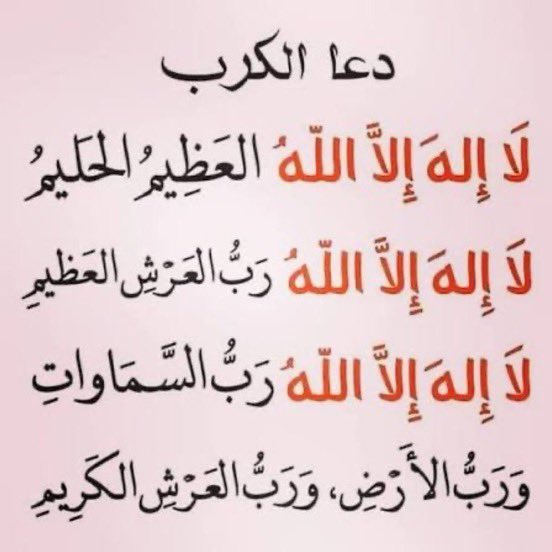 دعا الكرب
لَا إِلهَ إِلاَّ اللّهُ العَظِيمُ الحَليمُ
لَا إِلهَ إِلاَّ اللّهُ رَبُّ العَرْشِ العَظيمِ
لَا إِلهَ إِلاَّ اللّهُ رَبُّ السَّمَاواتِ
وَرَبُّ الأَرْضِ، وَرَبُّ العَرْشِ الكَرِيمِ